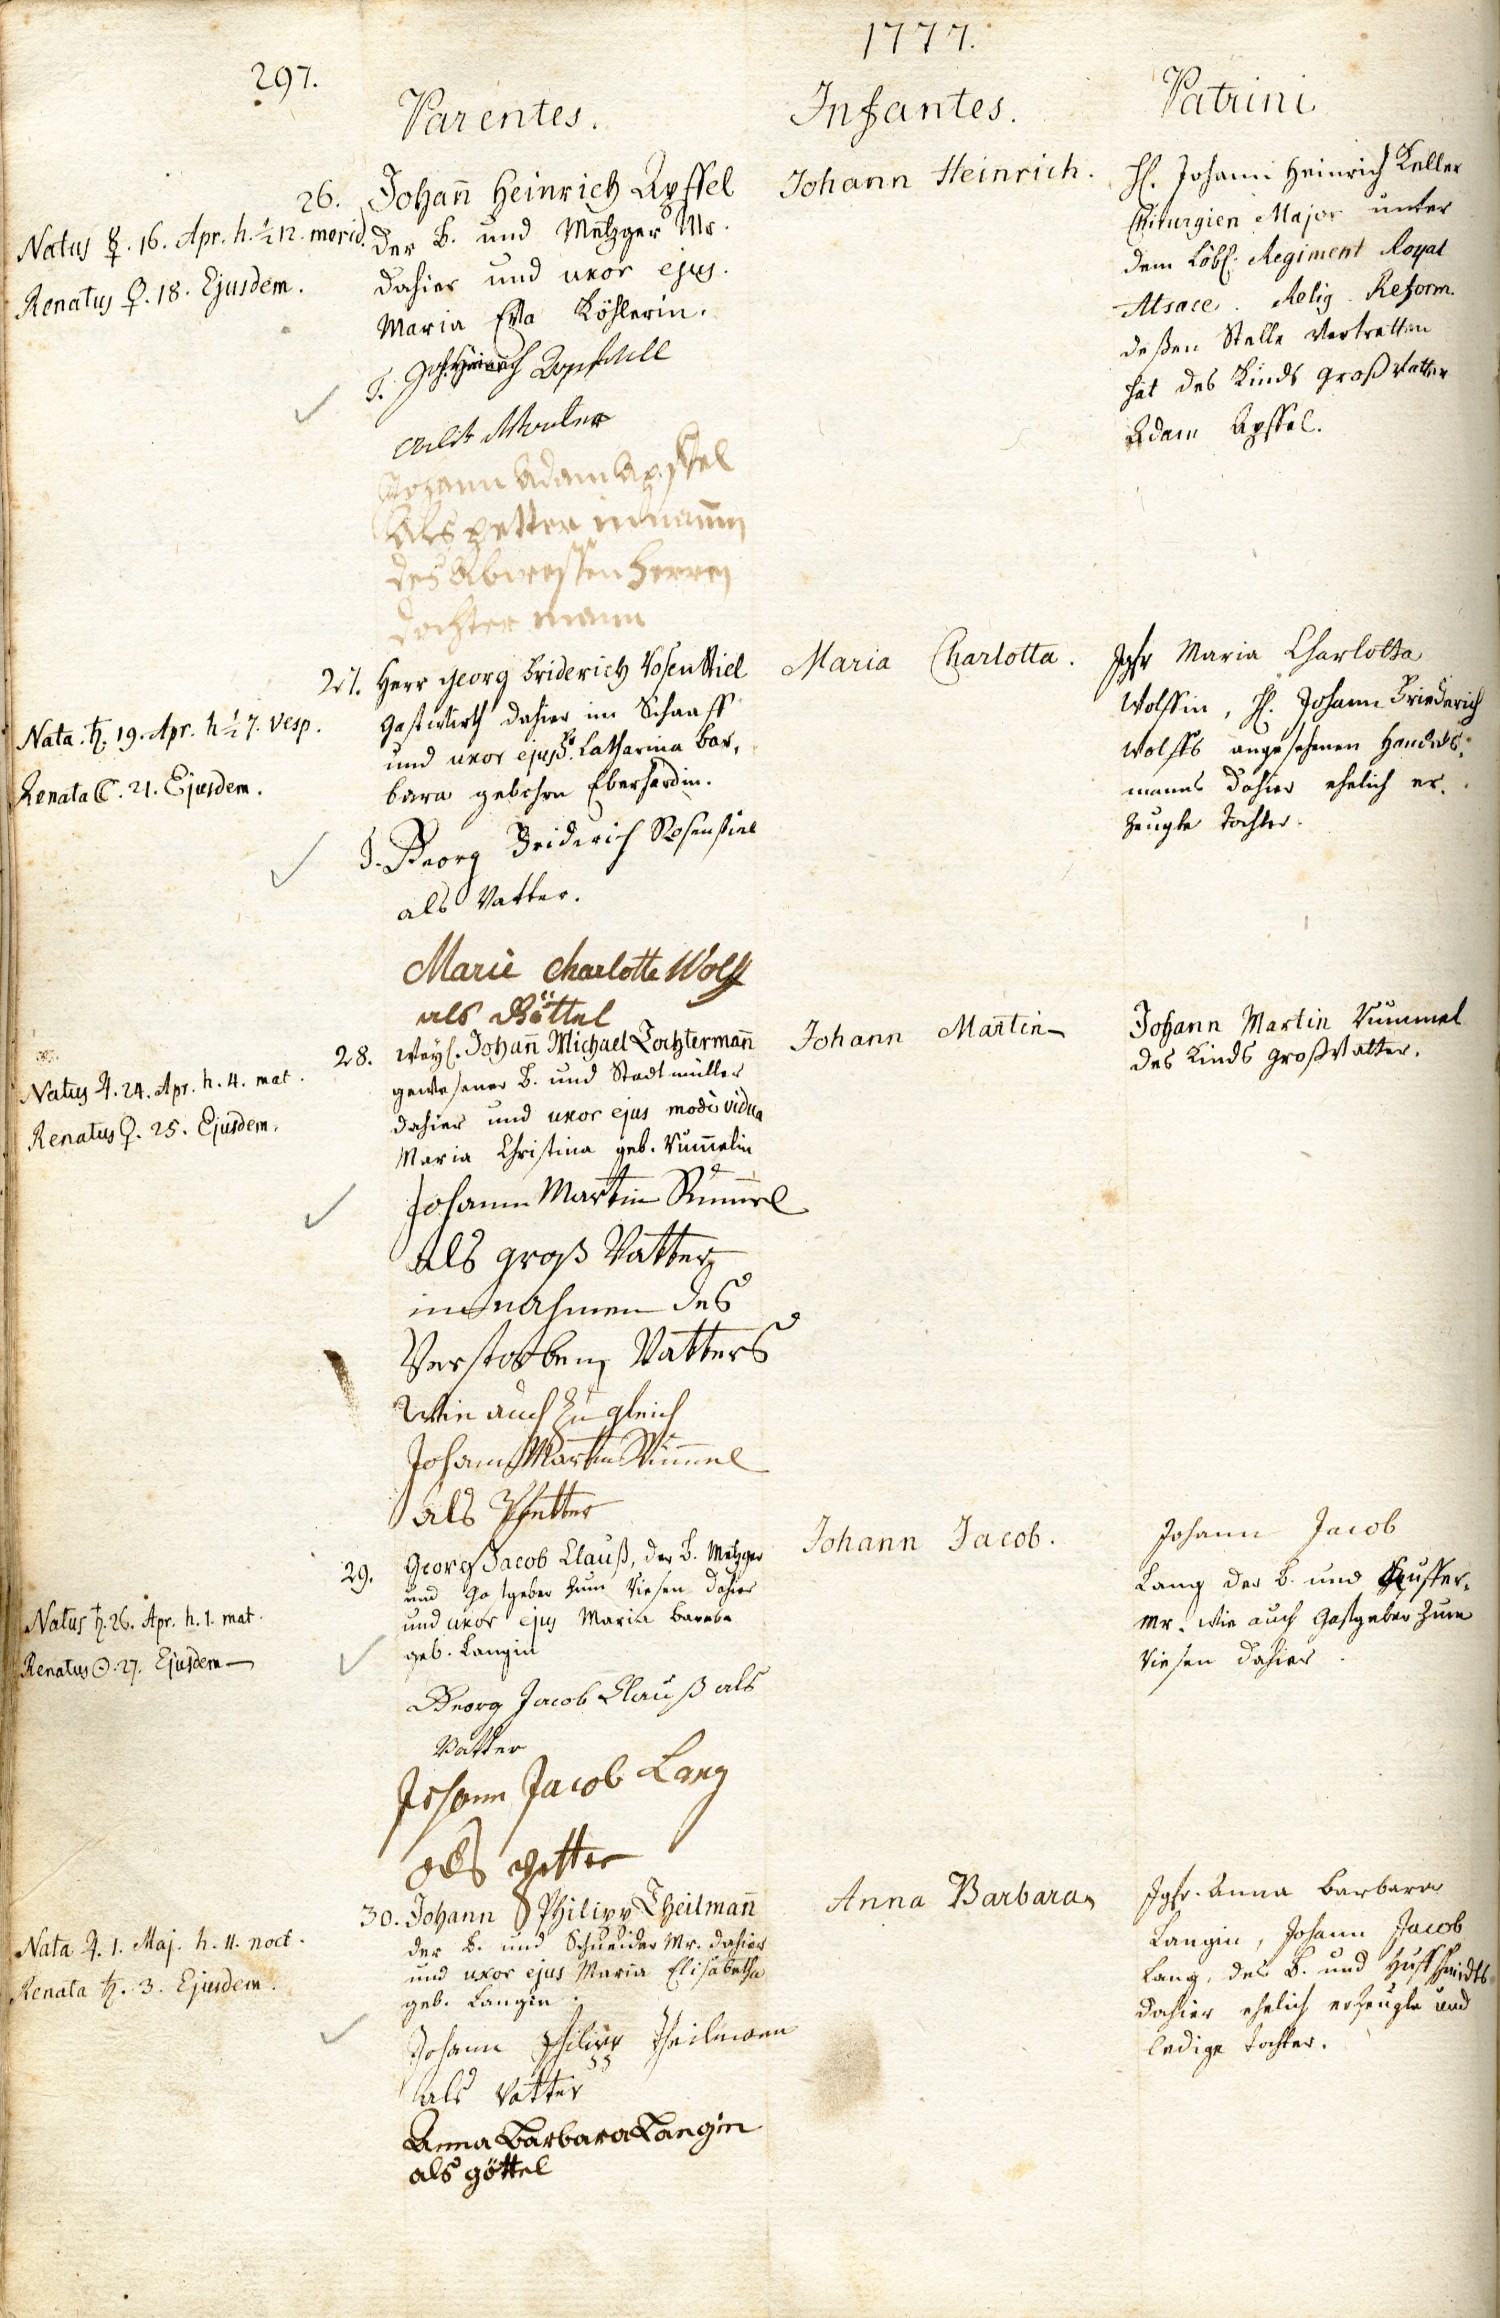 1777.
297.
Parentes.
Infantes.
Patrini
26.
Natus ☿. 16. Apr. h. ½ 12. merid.
Renatus ♀. 18. Ejusdem.
Johañ Heinrich Apffel
der B. und Metzger Mr.
dahier und uxor ejus.
Maria Eva Köhlerin.
T. Joh. Heinrich Apffell
als Vatter
Johann Adam Apffel
Als petter in namen
des Abweßen Herren
dochter mann
Johann Heinrich.
H. Johann Heinrich Keller
Chirurgien Major unter
dem Löbl. Regiment Royal
Alsace. Relig. Reform.
deßen Stelle Vertretten
hat des Kinds Großvatter
Adam Apffel.
27.
Nata ♄. 19. Apr. h ½ 7. Vesp.
Renata ☾. 21. Ejusdem.
Herr Georg Friderich Rosenstiel
Gastwirth dahier im Schaaff
und uxor ejus Fr. Catharina Bar,
bara gebohrn Eberhardin.
T. Georg Friderich Rosenstiel
als Vatter.
Marie Charlotte Wolff
als Göttel
Maria Charlotta.
Jgfr Maria Charlotta
Wolffin, H. Johann Friederich
Wolffs angesehenen Handels,
manns dahier ehelich er,
zeugte Tochter.
28.
Natus ♃. 24. Apr. h. 4. mat.
Renatus ♀. 25. Ejusdem.
Weyl. Johañ Michael Lochtermañ
gewesener B. und Stadtmüller
dahier und uxor ejus modò vidua
Maria Christina geb. Rum̄elin
Johann Martin Rum̄el
als groß Vatter
im nahmen des
Verstorben Vatters
Wie auch zu gleich
Johann Martin Rum̄el
als Pfetter
Johann Martin
Johann Martin Rummel
des Kinds Großvatter.
29.
Natus ♄. 26. Apr. h. 1. mat.
Renatus ☉. 27. Ejusdem
Georg Jacob Clauß, der B. Metzger
und Gastgeber zum Riesen dahier
und uxor ejus Maria Barbara
geb. Langin
Georg Jacob Clauß als
Vatter
Johann Jacob Lang
als petter
Johann Jacob.
Johann Jacob
Lang der B. und
Mr. wie auch Gastgeber zum
Riesen dahier.
30.
Nata ♃. 1. Maj. h. 11. noct.
Renata ♄. 3. Ejusdem.
Johann Philipp Theilmañ
der B. und Schneider Mr. dahier
und uxor ejus Maria Elisabetha
geb. Langin.
Johann Philipp Theilmann
als Vatter
Anna Barbara Langin
als göttel
Anna Barbara
Jgfr. Anna Barbara
Langin, Johann Jacob
Lang, des B. und Huffschmidts
dahier ehelich erzeugte und
ledige Tochter.